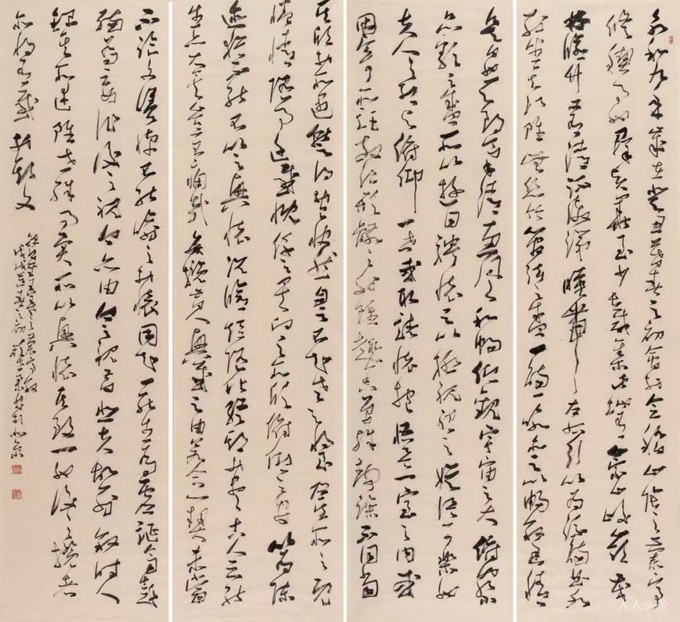 永和九年歲在癸丑暮春之初會於會稽山陰之蘭亭
修禊事也群賢畢至少長咸集此地有崇山峻嶺茂
林修竹又有清流激湍映帶左右引以為流觴曲水
列坐其次雖無絲竹管絃之盛一觴一詠亦足以暢敘幽情
是日也天朗氣清惠風和暢仰觀宇宙之大俯察
品類之盛所以遊目騁懷足以極視聽之娛信可樂也
夫人之相與俯仰一世或取諸懷抱悟言一室之內或
因寄所託放浪形骸之外雖趣舍萬殊靜躁不同當
其欣於所遇暫得於己快然自足不知老之將至及其所之既
倦情隨事遷感慨係之矣向之所欣俯仰之間以為陳
迹猶不能不以之興懷況脩短隨化終期於盡古人云死
生亦大矣豈不痛哉每攬昔人興感之由若合一契未嘗
不臨文嗟悼不能喻之於懷固知一死生為虛誕齊彭
殤為妄作後之視今亦由今之視昔悲夫故列敘時人
錄其所述雖世殊事異所以興懷其致一也後之攬者
亦將有感於斯文
人人头条